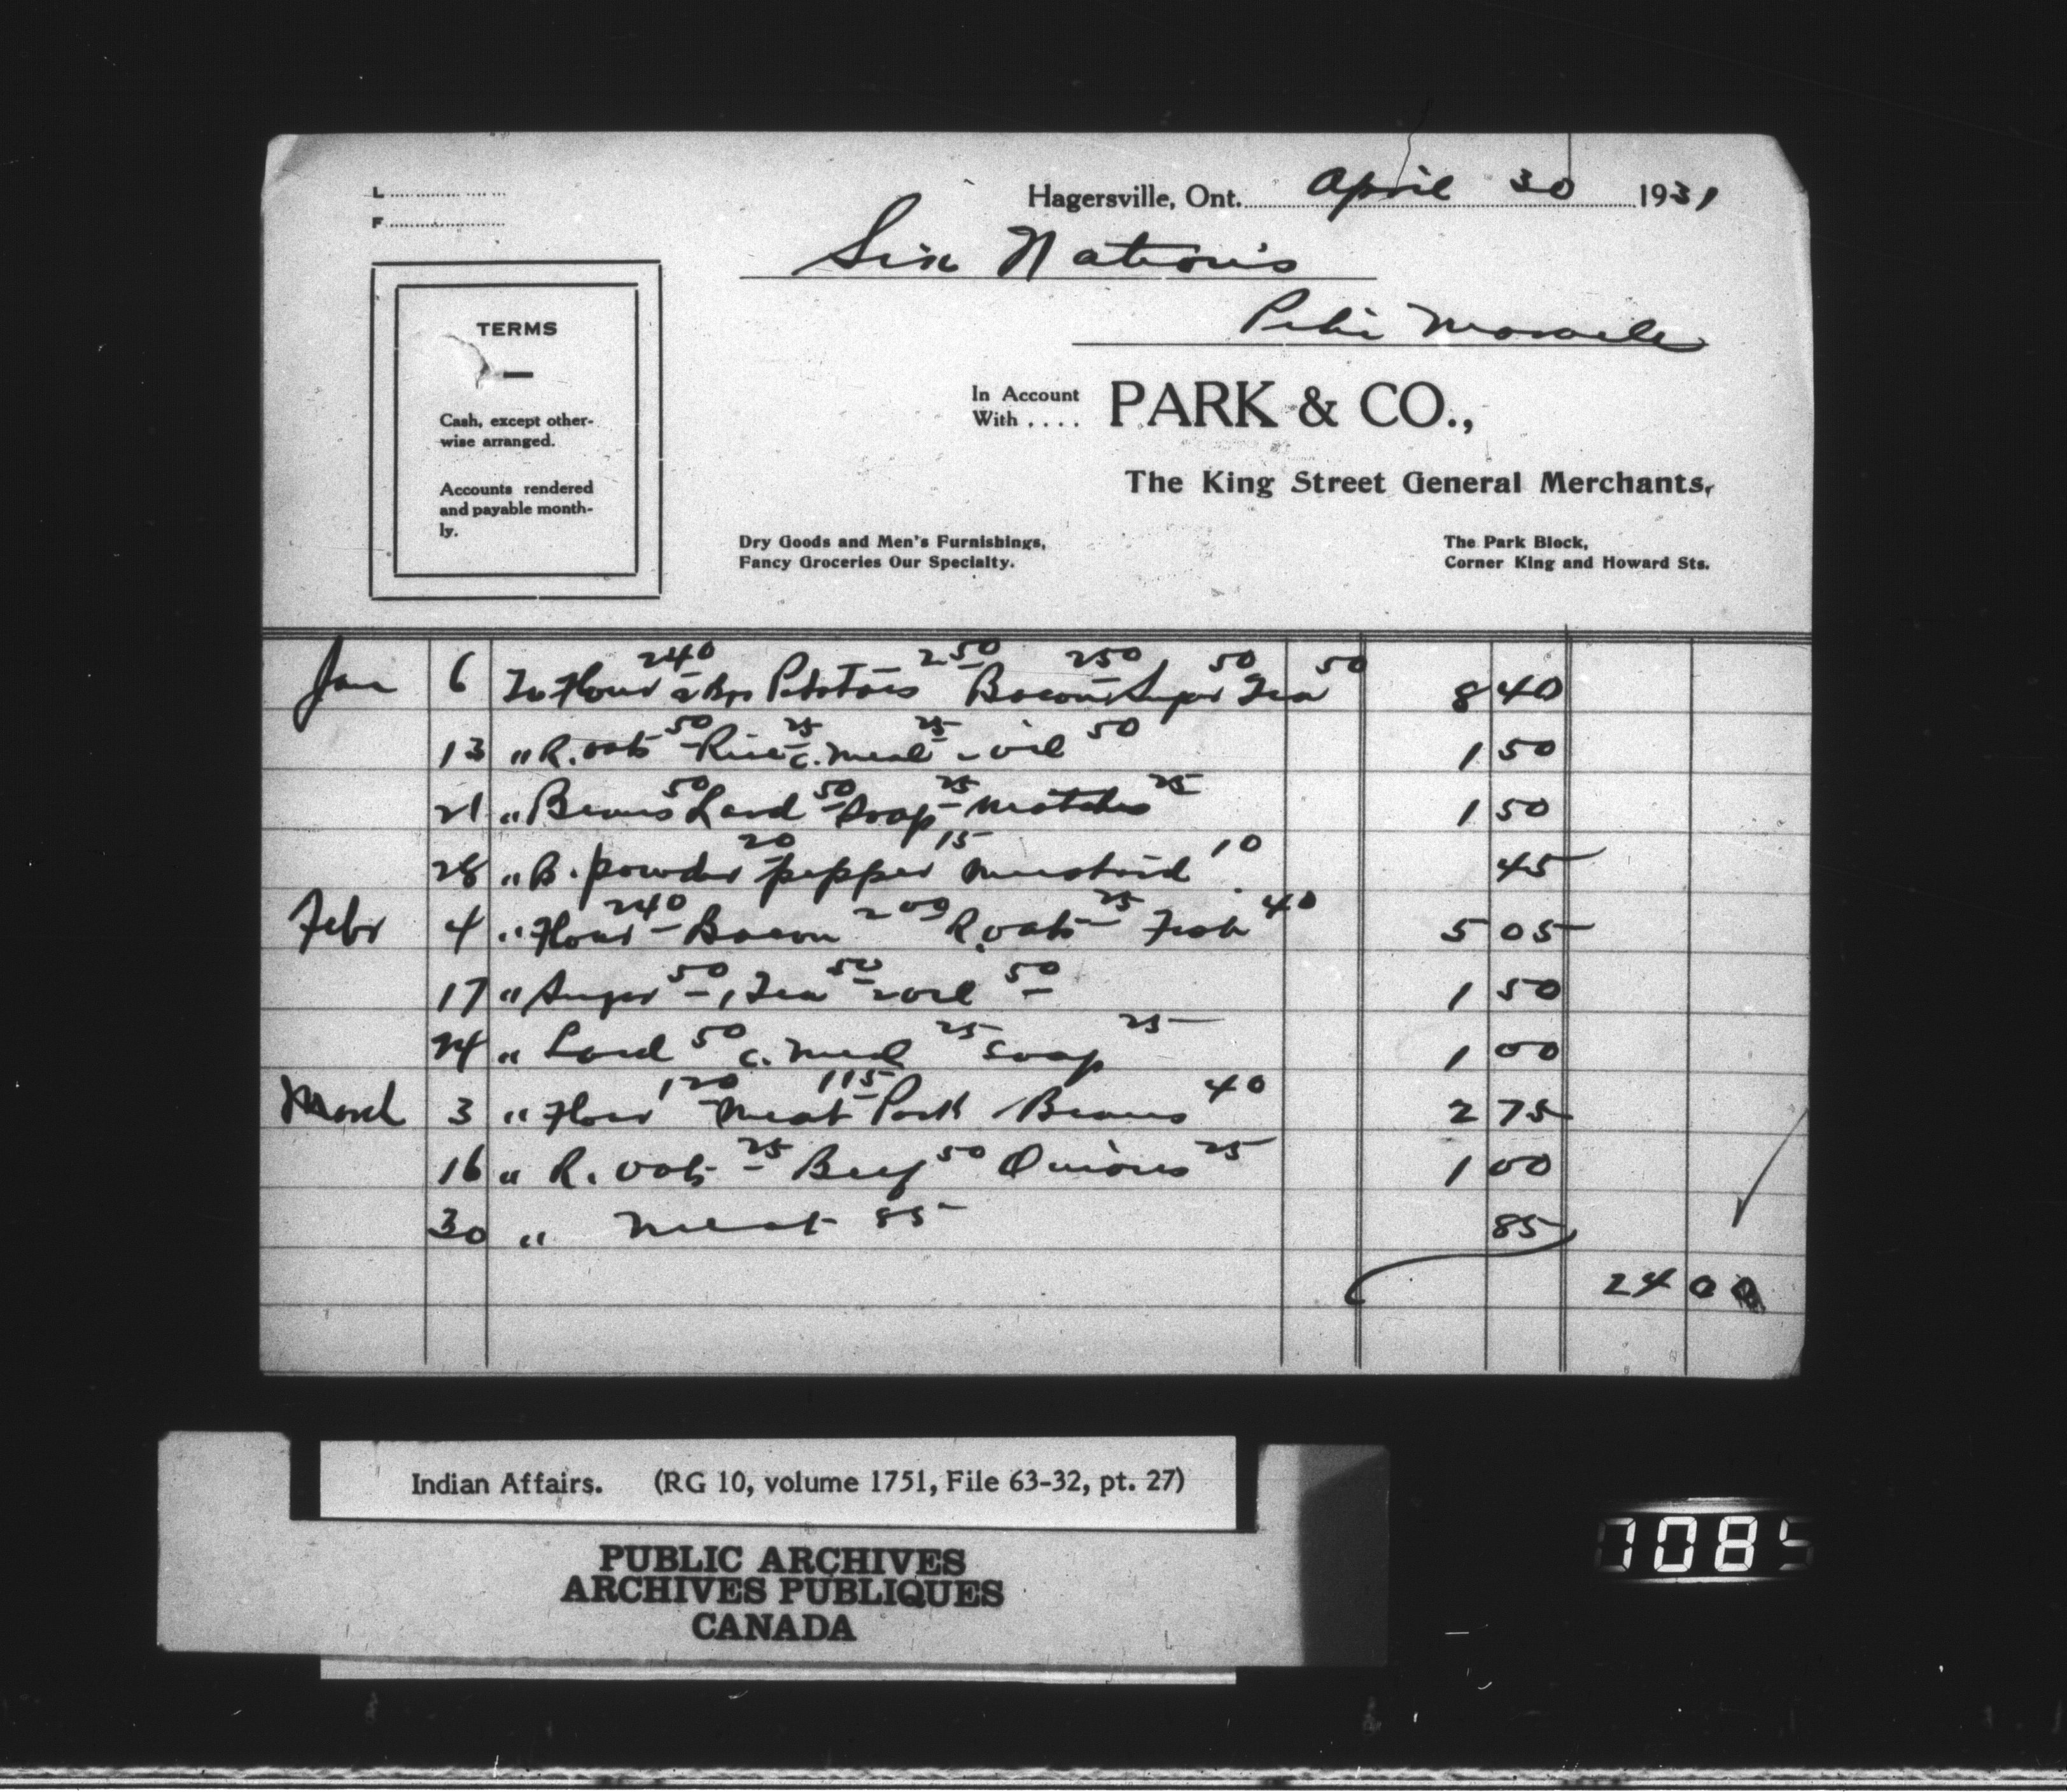 L ..........
F ..........
Hagersville, Ont. April 30 1931
Six Nation's
TERMS
—
Cash, except other-
wise arranged.
Accounts rendered
and payable month-
ly.
In Account
With . . . .
PARK & CO.,
The King Street General Merchants,
Dry Goods and Men's Furnishings,
Fancy Groceries Our Specialty.
The Park Block,
Corner King and Howard Sts.
Jan 6 To Flour 240 2 Bgs Potatoes 250 Bacon 250 Sugar 50 Tea 50 8 40
13 " R. oats 50 - Rice 25 c. meal 25 - oil 50 1 50
21 " Beans 50 Lard 50 - Soap 25 - matches 25 1 50
28 " B. powder 20 pepper 15 mustard 10 45
Febr 4 " Flour 240 - Bacon 200 R. oats 25 Fish 40 5 05
17 " Sugar 50 -, Tea 50 oil 50 1 50
24 " Lard 50 c. meal 25 soap 25 1 00
March 3 " Flour 120 - meat 115 Pork - Beans 40 2 75
16 " R. oats 25 - Beef 50 Onions 25 1 00
30 " meat 85 85
24 00
Indian Affairs. (RG 10, volume 1751, File 63-32, pt. 27)
PUBLIC ARCHIVES
ARCHIVES PUBLIQUES
CANADA
7085